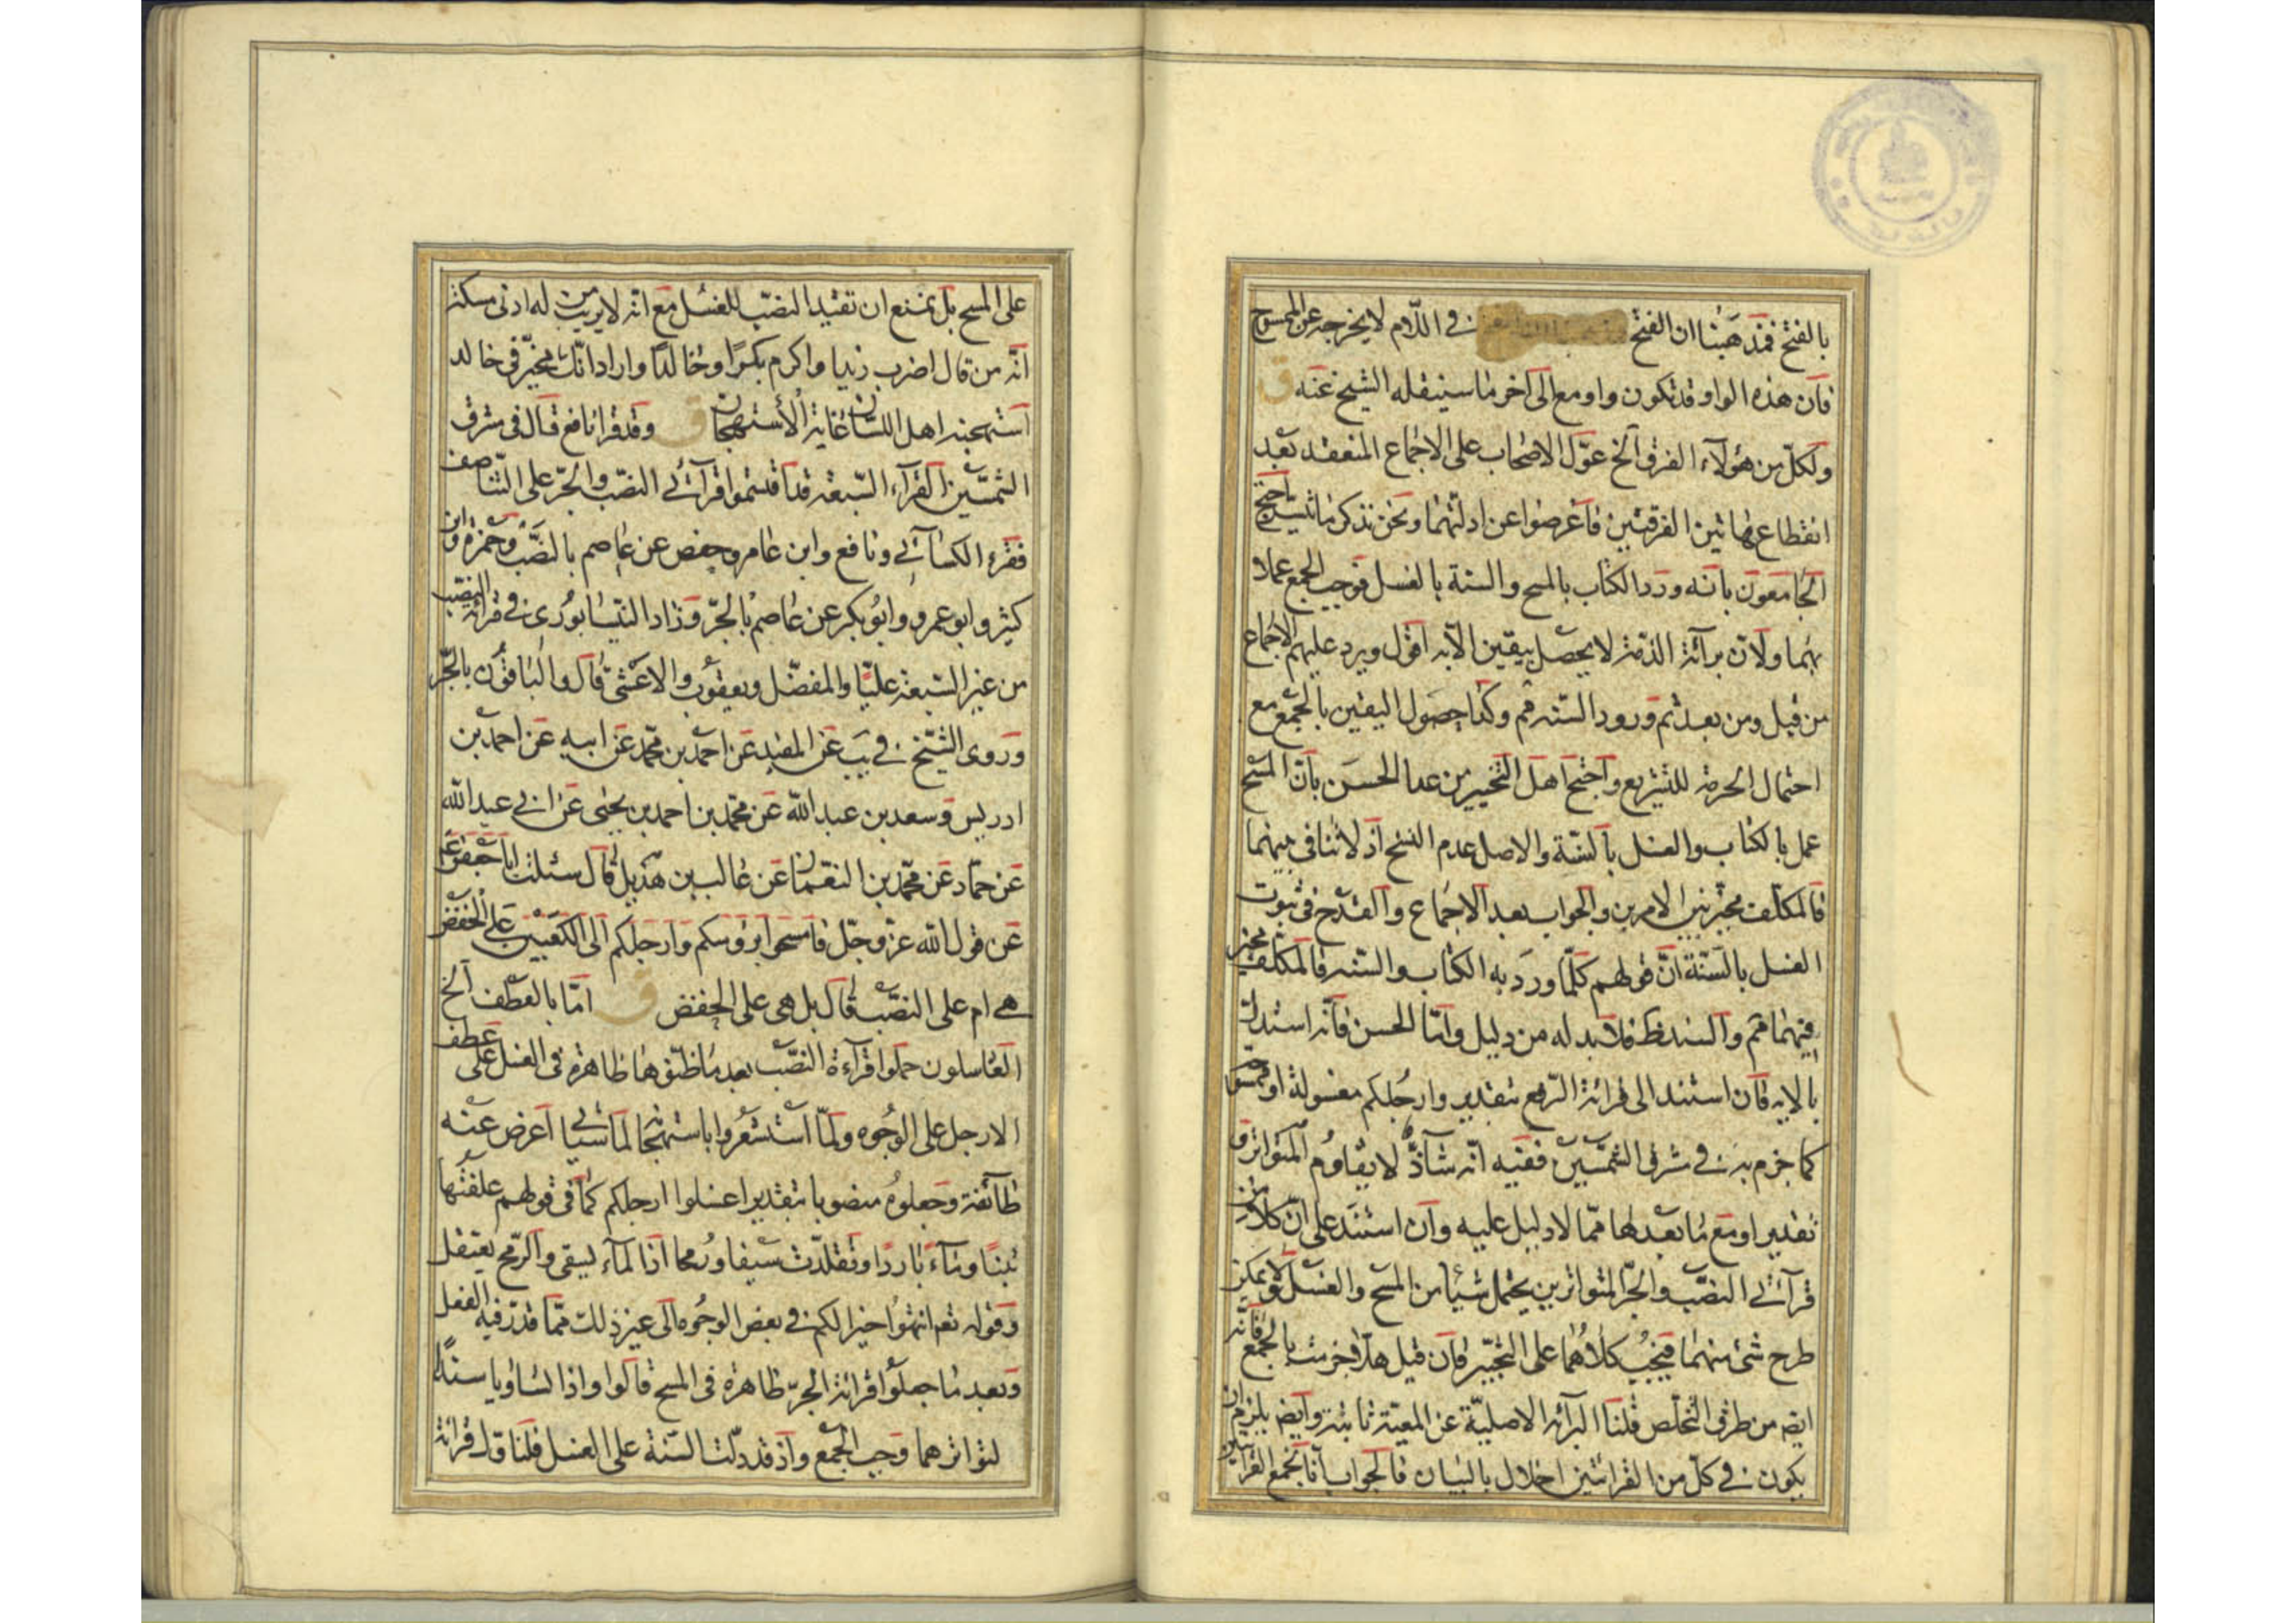 بالفتح فمذهبنا ان الفتح في اللّام لا يخرجه عن الممسوح
فانّ هذه الواو قد تكون واو مع الى آخر ما سينقله الشيخ عنه ق
ولكلّ من هؤلآء الفرق آلخ عوّل الاصحاب على الاجماع المنعقد بعد
انقطاع هاتين الفرقتين فاعرضوا عن ادلّتهما ونحن نذكر ما احتج
الجامعون بانه ورد الكتاب بالمسح والسنة بالغسل فوجب الجمع عملا
بهما ولانّ برآئة الذمّة لا يحصل بيقين الّا به اقول ويرد عليهم الاجماع
من قبل ومن بعد ثم ورود السّنه ثم وكذا حصول اليقين بالجمع مع
احتمال الحرمة للتشريع واحتج اهل التخيير من عدا الحسن بانّ المسح
عمل بالكتاب والغسل بالسّنة والاصل عدم النسخ اذ لا تنافي بينهما
فالمكلّف مخيّر بين الامرين والجواب بعد الاجماع والقدح في ثبوت
الغسل بالسّنة انّ قولهم كلّما ورد به الكتاب والسّنه فالمكلّف مخيّر
فيهما ثم والسند ظ فلا بد له من دليل وامّا الحسن فانّه استدل
بالايه فان استند الى قرائة الرّفع بتقدير وارجُلكم مغسولة او ممسوحة
كما جزم به في مشرق الشمسين ففيه انّه شآذّ لا يقاوم المتواتر و
تقدير او مع ما بعدها ممّا لا دليل عليه وان استند على انّ كلّا من
قرآئتي النصّب والجّر المتواترين يحتمل شيئا من المسح والغسل ولا يمكن
طرح شئ منهما فيجب كلاهما على التخيّير فان قيل هلّا جزمت بالجمع فانّه
ايض من طرق التخلّص قلنا البرآئه الاصليّة عن المعيّة ثابتة وايض يلزم ان
يكون في كلّ من القرائتين اخلال بالبيان فالجواب انّا نجمع القرائتين
على المسح بل يمتنع ان تقييد النصّب للغسل مع انّه لا يريب من له ادنى مسكة
انّه من قال اضرب زيدا واكرم بكرًا وخالدًا واراد انّك مخيّر في خالد
استهجنه اهل اللسان غاية الأستهجان ق وقد قرا نافع قال في مشرق
الشمسّين القرآء السّبعة قد اقتسموا قرآئتي النصّب والجّر على التّناصف
فقرء الكسآئي ونافع وابن عامر وحفص عن عاصم بالنصّب وحمزة وابن
كثير وابو عمرو وابو بكر عن عاصم بالجّر وزاد النيّسابوري في قرائة النصب
من غير السّبعة عليّا والمفضّل ويعقوب والاعشى قال والباقون بالجّر
وروى الشيّخ في يب عن المفيد عن احمد بن محمّد عن ابيه عن احمد بن
ادريس وسعد بن عبد الله عن محمّد بن احمد بن يحيى عن ابي عبد الله
عن حمّاد عن محمّد بن النعمان عن غالب بن هذيل قال سئلت ابا جعفر ع
عن قول الله عزّ وجّل فامسحوا برؤسكم وارجلكم الى الكعبين على الخفض
هي ام على النصّب قال بل هي على الخفض ق امّا بالعطف آلخ
الغاسلون حملوا قرآءة النصّب بعد ما ظنّوها ظاهرة في الغسل على عطف
الارجل على الوجوه ولمّا استشعروا باستهجانه لما سيأتي اعرض عنه
طآئفة وجعلوه منصوبا بتقدير اغسلوا ارجلكم كما في قولهم علفتُها
تبنًا ومآء باردًا وتقلدّت سيفا ورمحا اذا لمآء يسقى والرّمح يعتقل
وقوله تع انتهوا خيرا لكم في بعض الوجوه الى غير ذلك ممّا قدّر فيه الفعل
وبعد ما جعلوا قرائة الجرّ ظاهرة في المسح قالوا واذا تساويا سندًا
لتواترهما وجب الجمع واذ قد دلّت السّنة على الغسل فلنأوّل قرائة